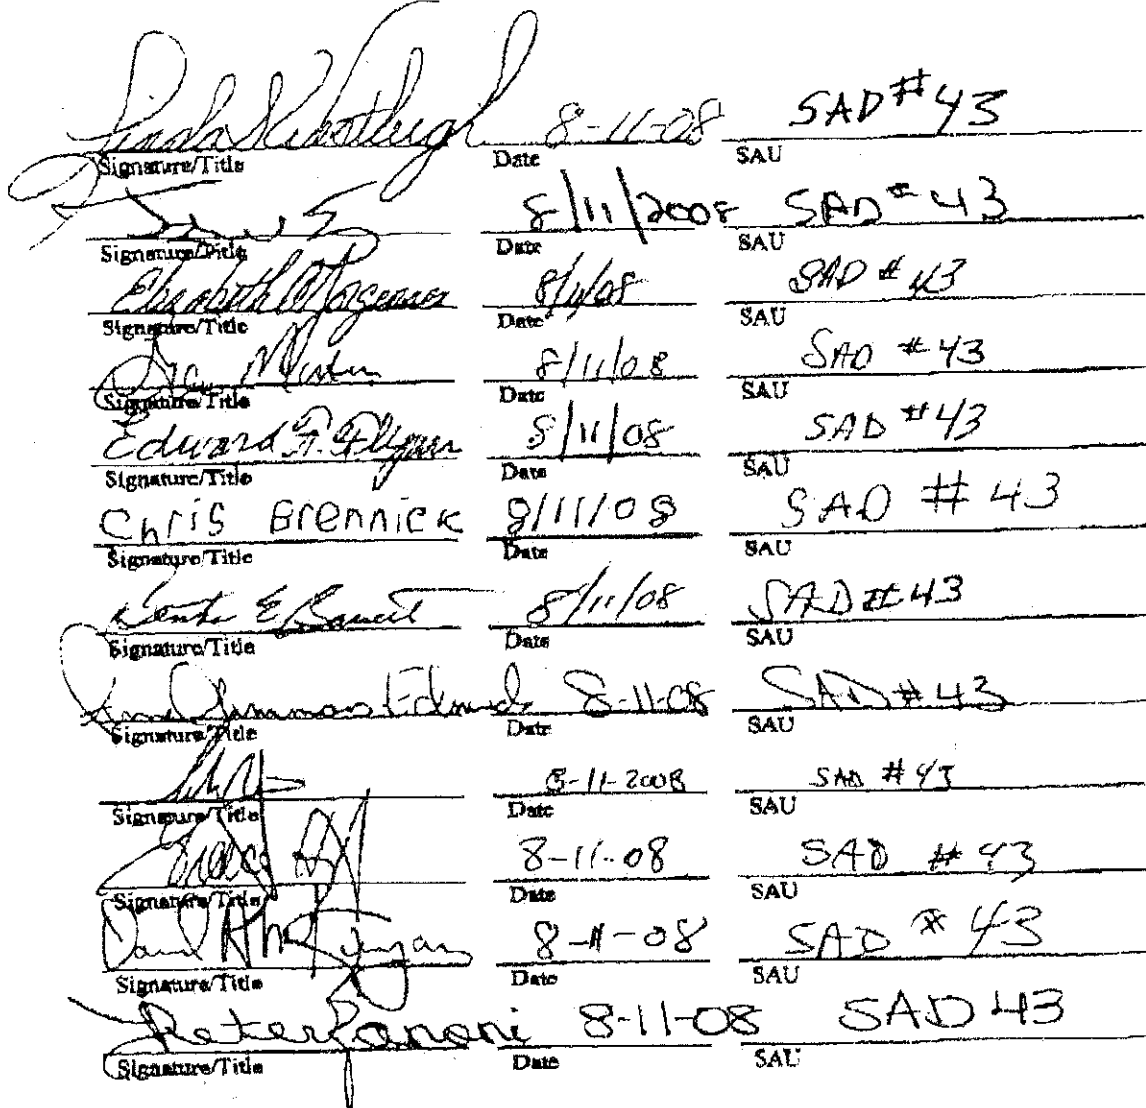 Linda 8-11-08 SAD #43
Signature/Title Date SAU
8/11/2008 SAD #43
Signature/Title Date SAU
Elizabeth 8/11/08 SAD #43
Signature/Title Date SAU
8/11/08 SAD #43
Signature/Title Date SAU
Edward 8/11/08 SAD #43
Signature/Title Date SAU
Chris Brennick 8/11/08 SAD #43
Signature/Title Date SAU
E 8/11/08 SAD #43
Signature/Title Date SAU
8-11-08 SAD #43
Signature/Title Date SAU
8-11-2008 SAD #43
Signature/Title Date SAU
8-11-08 SAD #43
Signature/Title Date SAU
David 8-11-08 SAD #43
Signature/Title Date SAU
8-11-08 SAD 43
Signature/Title Date SAU